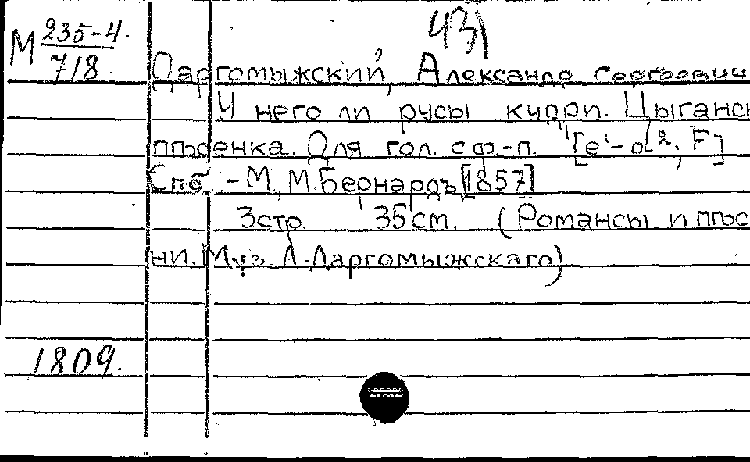 М 235-4.
718
431
Даргомыжский, Александр Сергеевич
У него ли русы кудри. Цыганс
пѣсенка. Для гол. с ф-п. [e¹-a², F]
Спб. - М., М. Бернардъ, [1857]
3 стр. 35 см. (Романсы и пѣс
ни. Муз. А. Даргомыжскаго)
1809.